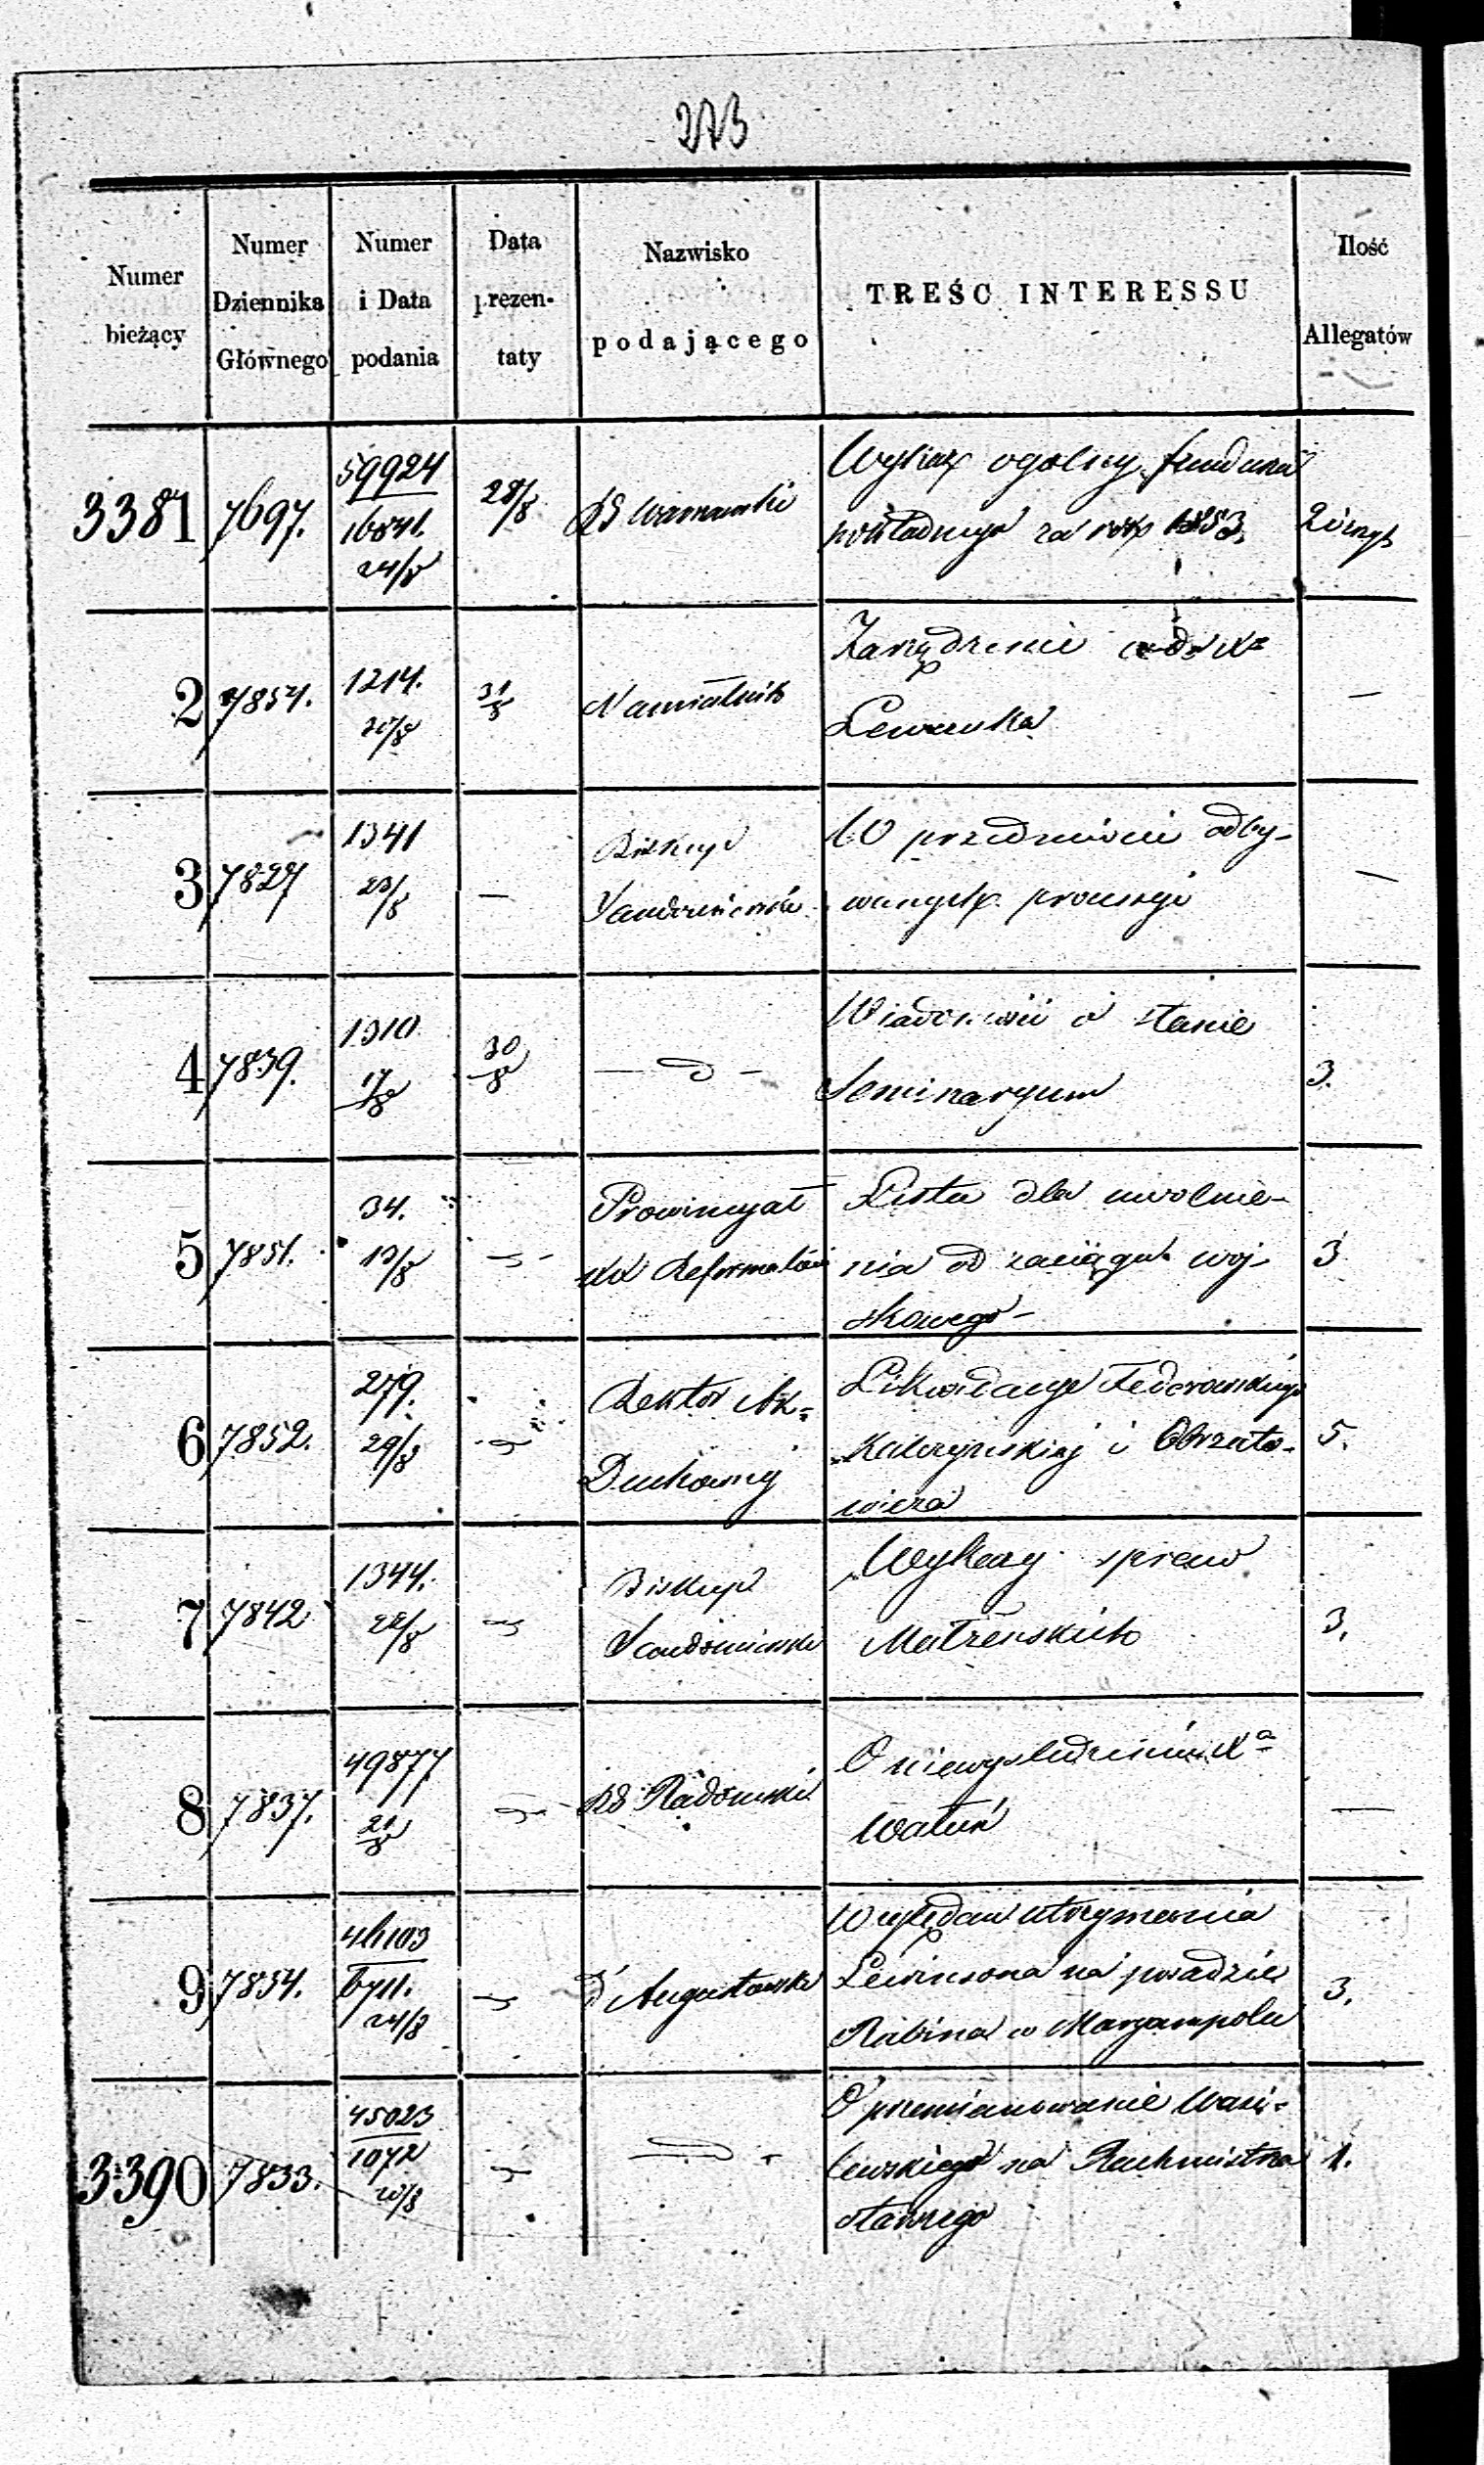 273
Numer bieżący
Numer Dziennika Głównego
Numer i Data podania
Data prezen- taty
Nazwisko podającego
TREŚĆ INTERESSU
Ilość Allegatów
3381
7697.
59924
16841.
24/8
28/8
RG Warszawski
Wykaz ogólny fundusz
pokładnego za rok 1853.
2
7854.
1214.
20/8
31/8
Namiestnik
Zarządzenie Xa
3
7827
1341
23/8
—
Biskup
Sandomierski
W przedmiocie odby-
wanych processyi
—
4
7839.
1310
17/8
30/8
— D —
Wiadomość o stanie
Seminaryum
3.
5
7851.
34.
13/8
Prowincyał
XX Reformatów
Lista dla uwolnie-
nia od zaciągu woj-
skowego
3
6
7852.
279.
29/8
Rektor Ak=
Duchownej
Likwidacye Fedorowskiego
i
wicza
5.
7
7842
1344.
22/8
Biskup
Sandomierski
Wykazy spraw
Małżeńskich
3.
8
7837.
49877
21/8
RG Radomski
O niewyśledzeniu Xa
—
9
7854.
24/8
Augustowski
Względem utrzymania
Lewinsona na posadzie
Rabina w Maryampolu
3.
3390
7833.
45023
1072
20/8
— D —
O przemianowanie Wasi-
lewskiego na Rachmistrza
starszego
1.